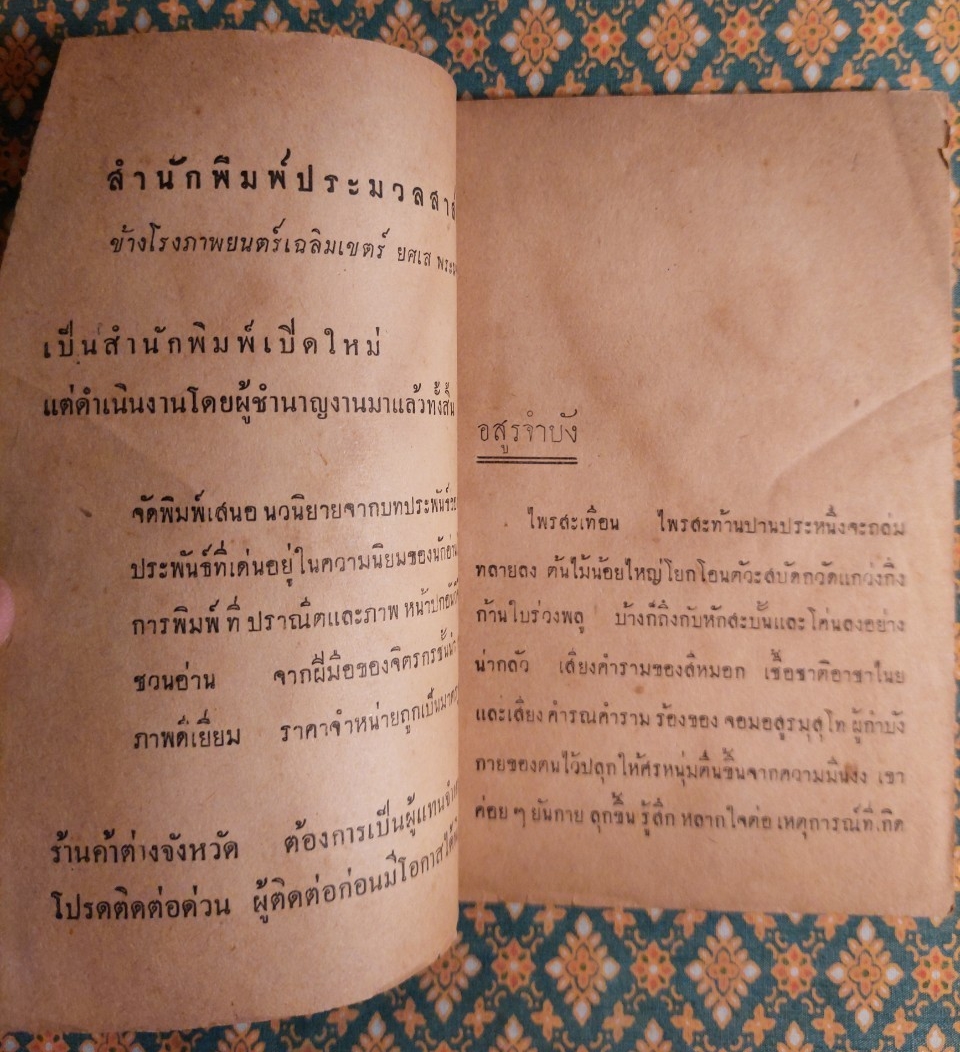 สำนักพิมพ์ประมวลสา
ข้างโรงภาพยนตร์เฉลิมเขตร์ ยศเส
เป็นสำนักพิมพ์เปิดใหม่
แต่ดำเนินงานโดยผู้ชำนาญงานมาแล้วทั้งสิ้น
จัดพิมพ์เสนอ นวนิยายจากบทประพันธ์
ประพันธ์ที่เด่นอยู่ในความนิยมของนักอ่าน
การพิมพ์ ที่ ปราณีตและภาพ หน้าปก
ชวนอ่าน จากฝีมือของจิตรกรชั้น
ภาพดีเยี่ยม ราคาจำหน่ายถูกเป็น
ร้านค้าต่างจังหวัด ต้องการเป็นผู้แทน
โปรดติดต่อด่วน ผู้ติดต่อก่อนมีโอกาส
อสูรจำบัง
ไพรสะเทือน ไพรสะท้านปานประหนึ่งจะถล่ม
ทลายลง ต้นไม้น้อยใหญ่โยกโอนตัวะสบัดกวัดแกว่งกิ่ง
ก้านใบร่วงพลู บ้างก็ถึงกับหักสะบั้นและโค่นลงอย่าง
น่ากลัว เสียงคำรามของสีหมอก เชื้อชาติอาชาไนย
และเสียง คำรณคำราม ร้องของ จอมอสูรมุสุโท ผู้กำบัง
กายของตนไว้ปลุกให้ศรหนุ่มตื่นขึ้นจากความมึนงง เขา
ค่อย ๆ ยันกาย ลุกขึ้น รู้สึก หลากใจต่อ เหตุการณ์ที่เกิด